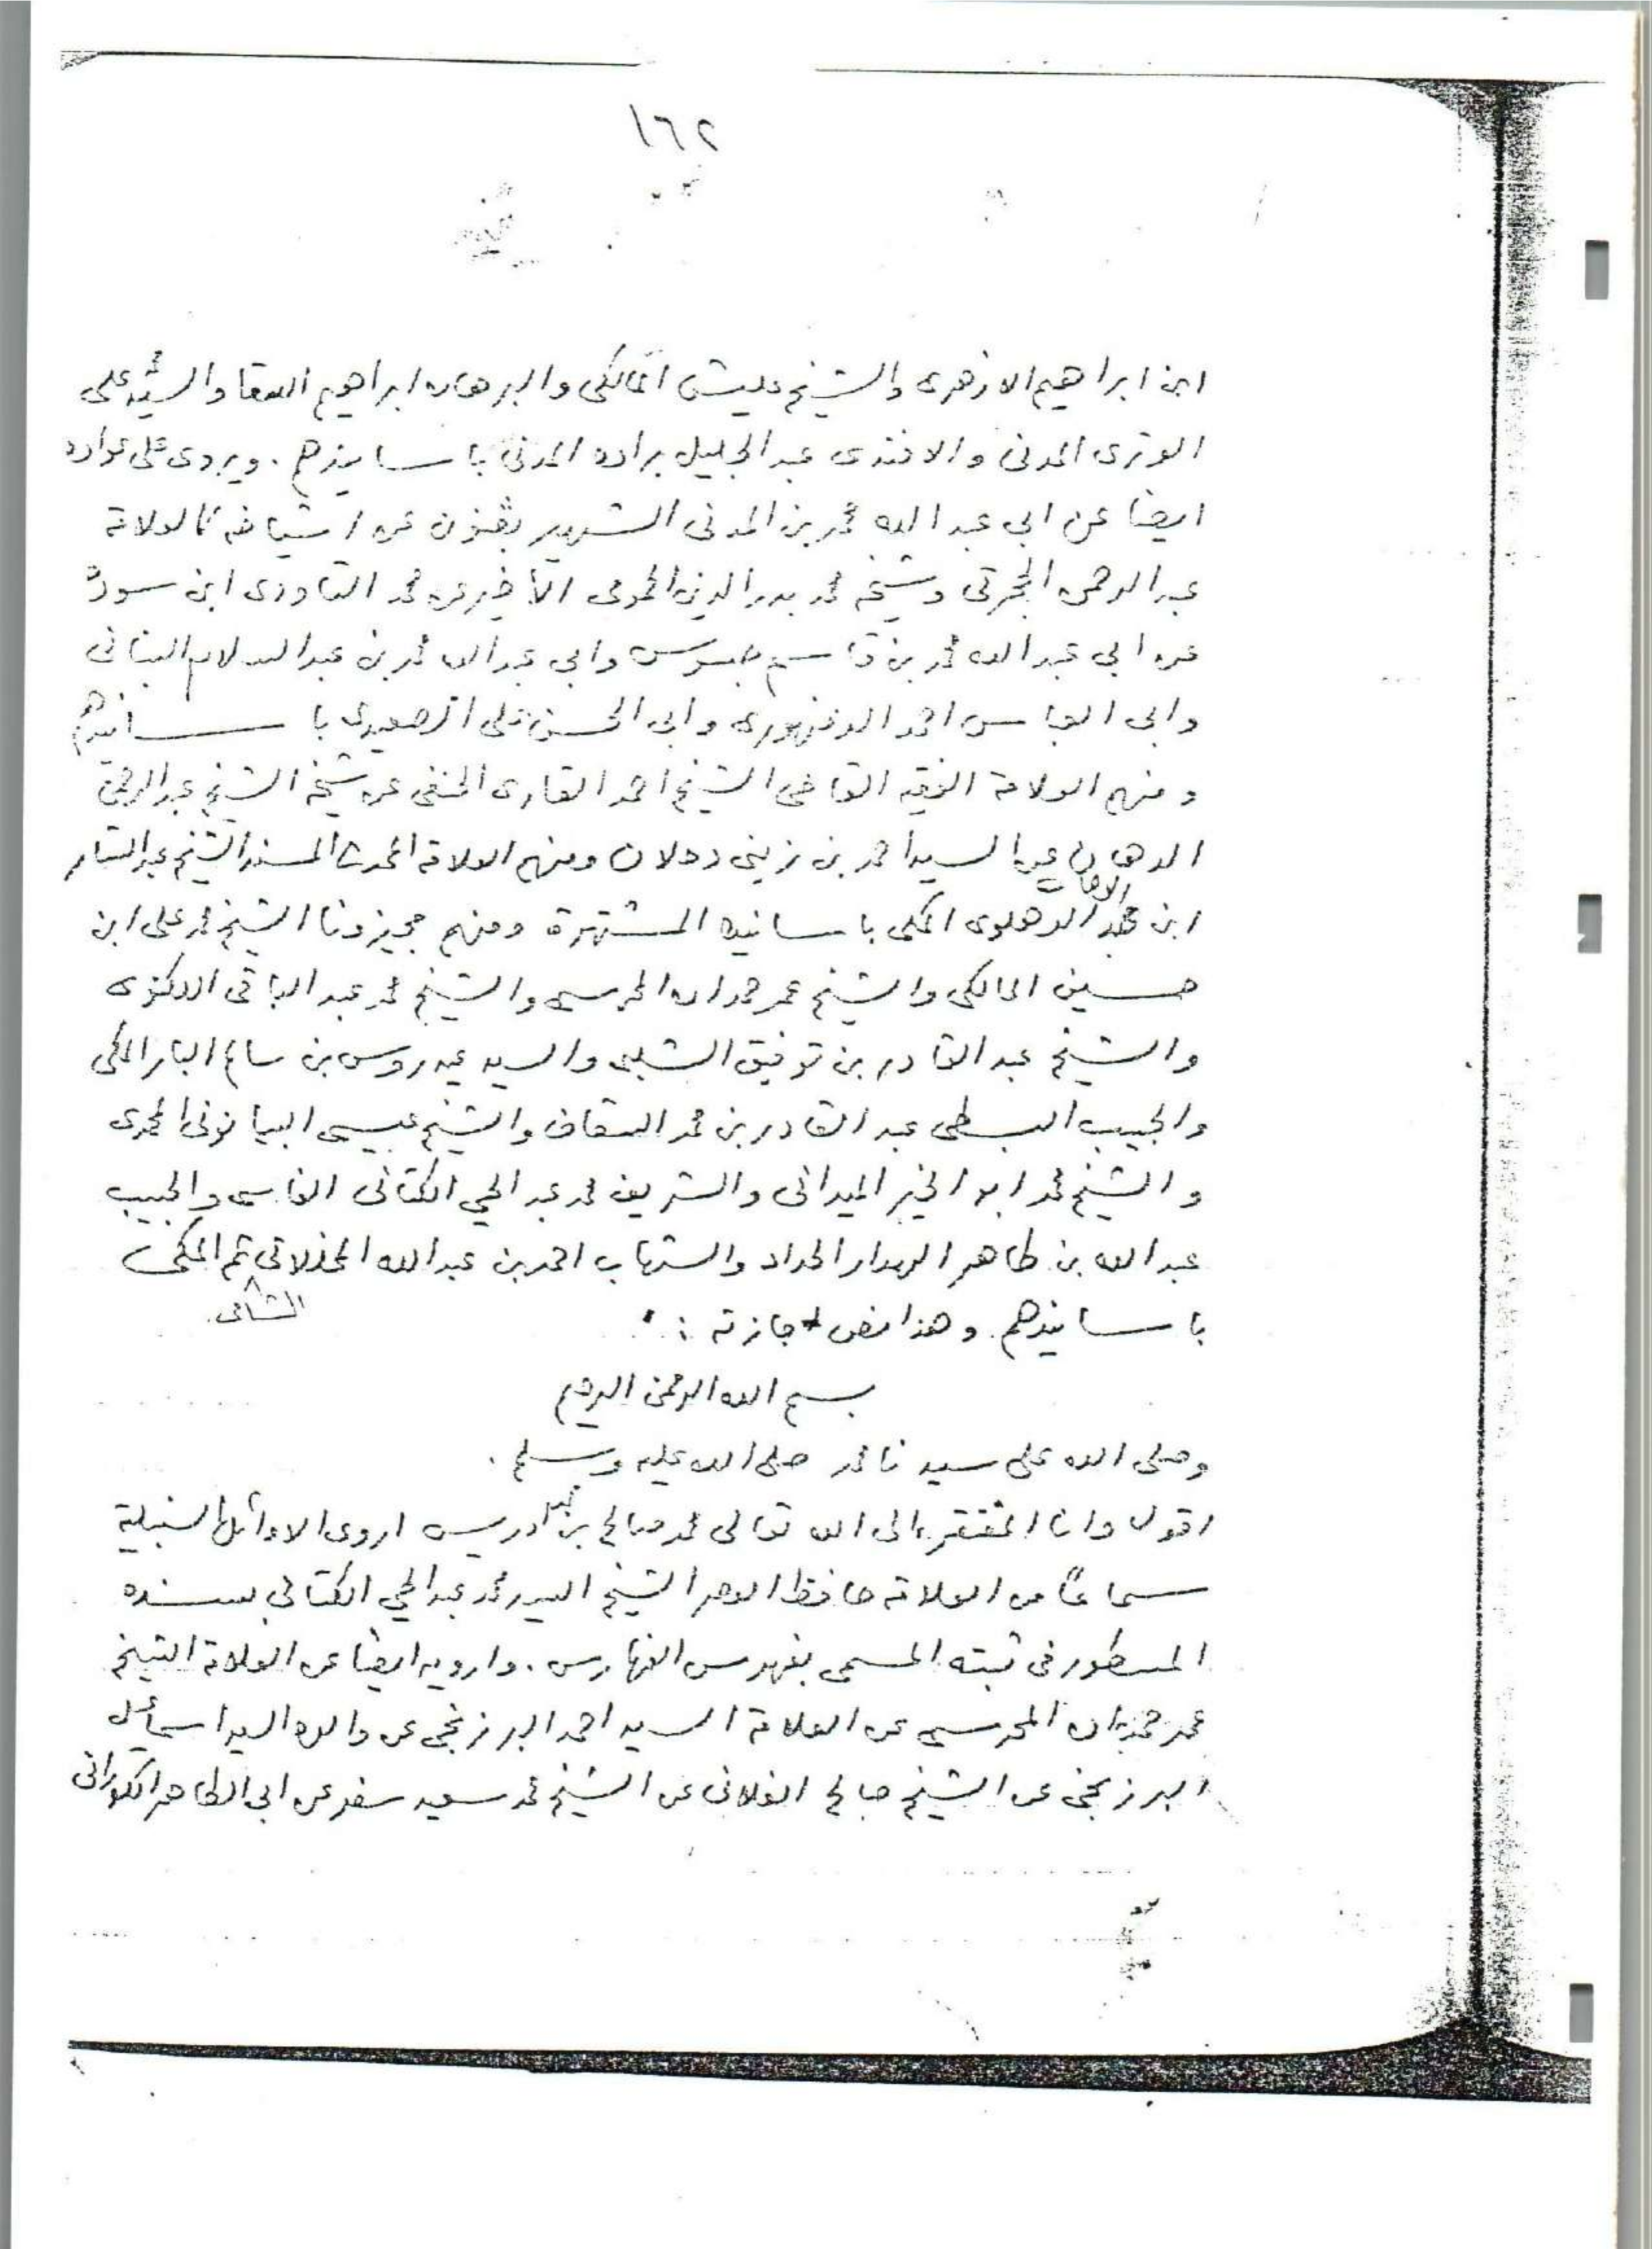 ١٦٢
ابن ابراهيم الازهرى والشيخ عليش المالكى والبرهان ابراهيم السقا والسيد على
الوترى المدنى والافندى عبد الجليل براده المدنى باسانيدهم . ويروى على عواده
ايضا عن ابي عبد الله محمد بن المدنى الشهير بقنون عن اشياخه كالعلامة
عبد الرحمن الجبرتى وشيخه محمد بدر الدين الحموى الأخير عن محمد التاودى ابن سودة
عن ابي عبد الله محمد بن قاسم جسوس وابي عبد الله محمد بن عبد السلام البنانى
وابى العباس احمد الدمنهورى وابى الحسن على الصعيدى باسانيدهم
ومنهم العلامة الفقيه القاضى الشيخ احمد القارى الحنفى عن شيخه الشيخ عبد الرحمن
الدهان عن السيد احمد بن زينى دحلان ومنهم العلامة المحدث المسند الشيخ عبد الستار
ابن عبد الوهاب الدهلوى المكى باسانيده المشتهرة ومنهم مجيزونا الشيخ محمد على ابن
حسين المالكى والشيخ عمر حمدان المحرسى والشيخ محمد عبد الباقى اللكنوى
والشيخ عبد القادر بن توفيق الشلبى والسيد عيدروس بن سالم البار المكى
والحبيب السبطى عبد القادر بن محمد السقاف والشيخ عيسى البيانونى المحمدى
والشيخ محمد ابو الخير الميدانى والشريف محمد عبد الحي الكتانى الفاسى والحبيب
عبد الله بن طاهر الهدار الحداد والشهاب احمد بن عبد الله المخللاتى الشامى ثم المكى
باسانيدهم وهذا نص اجازته :
بسم الله الرحمن الرحيم
وصلى الله على سيدنا محمد صلى الله عليه وسلم .
اقول وانا المفتقر الى الله تعالى محمد صالح بن محمد ادريس اروى الاوائل السنبلية
سماعًا من العلامة حافظ العصر الشيخ السيد محمد عبد الحي الكتانى بسنده
المسطور فى ثبته المسمى بفهرس الفهارس . وارويه ايضا عن العلامة الشيخ
عمر حمدان المحرسى عن العلامة السيد احمد البرزنجى عن والده السيد اسماعيل
البرزنجى عن الشيخ صالح الفلانى عن الشيخ محمد سعيد سفر عن ابى الطاهر الكورانى